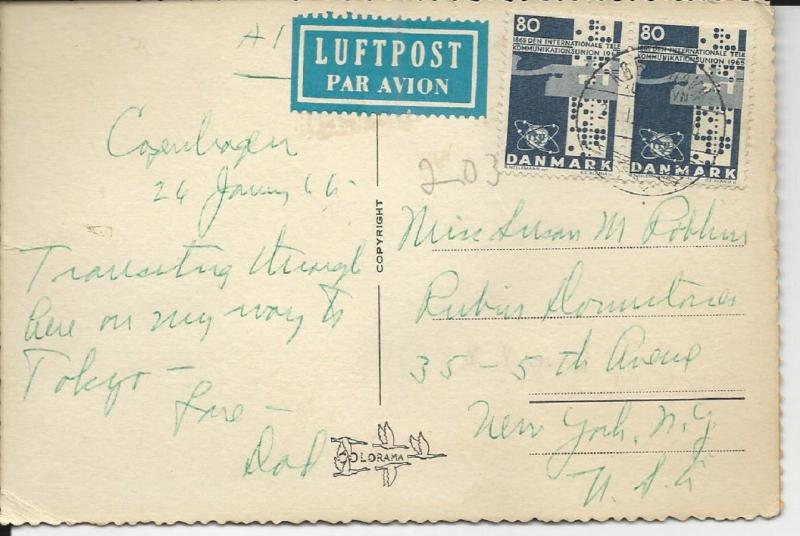 AI
LUFTPOST
PAR AVION
80
1865 DEN INTERNATIONALE TELE
KOMMUNIKATIONSUNION 1965
DANMARK
80
1865 DEN INTERNATIONALE TELE
KOMMUNIKATIONSUNION 1965
DANMARK
203
Copenhagen
26 January 66
Transiting through
here on my way to
Tokyo –
Love –
Dad
COPYRIGHT
COLORAMA
Miss Susan M Robbins
Rubin Dormitories
35 – 5th Avenue
New York, N.Y.
U.S.A